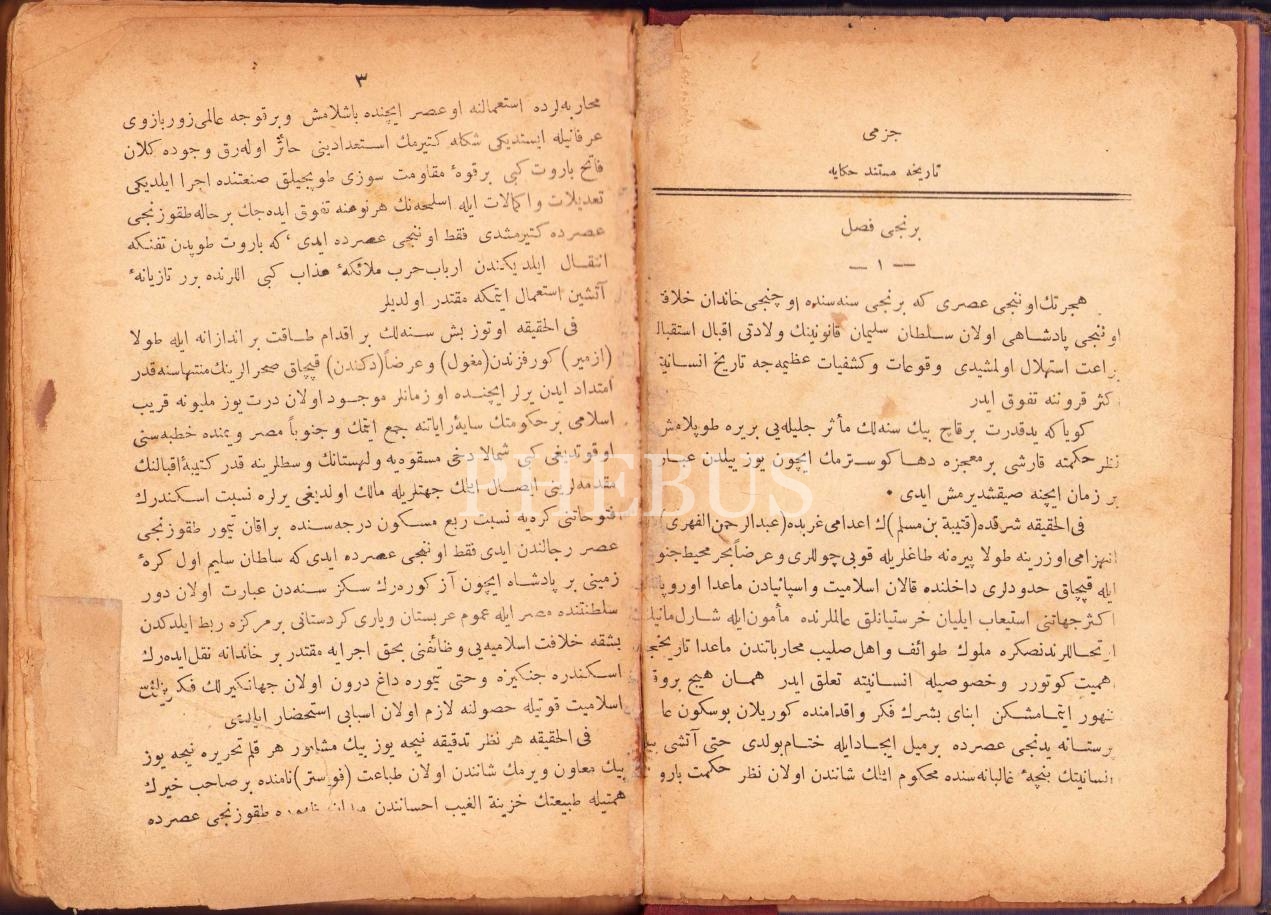 جزمی
تاریخه مستند حکایه
برنجی فصل
— ۱ —
هجرتك اوننجی عصری که برنجی سنه‌سنده اوچنجی خاندان خلافت
اوننجی پادشاهی اولان سلطان سلیمان قانونینك ولادتی اقبال استقبال
براعت استهلال اولمشیدی وقوعات وکشفیات عظیمه‌جه تاریخ انسانیتك
اکثر قروننه تفوق ایدر
کویاکه ید قدرت برقاچ بیك سنه‌لك مآثر جلیله‌یی بریره طوپلامش
نظر حکمته قارشی بر معجزه دها کوسترمك ایچون یوز ییلدن عبارت
بر زمان ایچنه صیقشدیرمش ایدی .
فی الحقیقه شرقده (قتیبة بن مسلم)ك اعدامی غربده (عبدالرحمن الفهری)
انهزامی اوزرینه طولا پیرنه طاغلریله قوبی چوللری وعرضاً بحر محیط جنوبی
ایله قیپچاق حدودلری داخلنده قالان اسلامیت واسپانیادن ماعدا اوروپانك
اکثر جهاتنی استیعاب ایلیان خرستیانلق عالملرنده مأمون ایله شارلمانیك
ارتحاللرندنصکره ملوك طوائف واهل صلیب محارباتندن ماعدا تاریخجه
اهمیت کوتورر وخصوصیله انسانیته تعلق ایدر همان هیچ بر وقعه
ظهور ایتمامشکن ابنای بشرك فکر واقدامنده کوریلان بوسکون عا
پرستانه یدنجی عصرده بر میل ایجاد ایله ختام بولدی حتی آتشی بیله
انسانیتك پنجهٔ غالبانه‌سنده محکوم ایتمك شانندن اولان نظر حکمت باروتی
۳
محاربه‌لرده استعمالنه او عصر ایچنده باشلامش وبر قوجه عالمی زور بازوی
عرفانیله ایستدیکی شکله کتیرمك استعدادینی حائز اوله‌رق وجوده کلان
فاتح باروت کبی بر قوهٔ مقاومت سوزی طوپجیلق صنعتنده اجرا ایلدیکی
تعدیلات واکمالات ایله اسلحه‌نك هر نوعنه تفوق ایده‌جك بر حاله طقوزنجی
عصرده کتیرمشدی فقط اوننجی عصرده ایدی ، که باروت طوپدن تفنکه
انتقال ایلدیکندن ارباب حرب ملائکهٔ عذاب کبی اللرنده برر تازیانهٔ
آتشین استعمال ایتمکه مقتدر اولدیلر
فی الحقیقه اوتوز بش سنه‌لك بر اقدام طاقت براندازانه ایله طولا
(ازمیر) کورفزندن (مغول) وعرضاً (دکندن) قیپچاق صحرالرینك منتهاسنه قدر
امتداد ایدن یرلر ایچنده او زمانلر موجود اولان درت یوز ملیونه قریب
اسلامی بر حکومتك سایهٔ رایاتنه جمع ایتمك وجنوباً مصر ویمنده خطبه‌سنی
اوقوتدیغی کبی شمالا دخی مسقوه‌یه ولهستانك وسطلرینه قدر کتیبهٔ اقبالنك
مقدمه‌لرینی ایصال ایتمك جهتلریله مالك اولدیغی یرلره نسبت اسکندرك
فتوحاتنی کره‌یه نسبت ربع مسکون درجه‌سنده براقان تیمور طقوزنجی
عصر رجالندن ایدی فقط اوننجی عصرده ایدی که سلطان سلیم اول کرهٔ
زمینی بر پادشاه ایچون آز کوره‌رك سکز سنه‌دن عبارت اولان دور
سلطنتنده مصر ایله عموم عربستان ویاری کردستانی بر مرکزه ربط ایلدکدن
بشقه خلافت اسلامیه‌یی وظائفنی بحق اجرایه مقتدر بر خاندانه نقل ایده‌رك
اسکندره جنکیزه وحتی تیموره داغ درون اولان جهانکیرلك فکرینك
اسلامیت قوتیله حصولنه لازم اولان اسبابی استحضار ایلدی
فی الحقیقه هر نظر تدقیقه نیجه یوز بیك مشاور هر قلم تحریره نیجه یوز
بیك معاون ویرمك شانندن اولان طباعت (فوستر) نامنده بر صاحب خیرك
همتیله طبیعتك خزینة الغیب احسانندن میدان ظهوره طقوزنجی عصرده